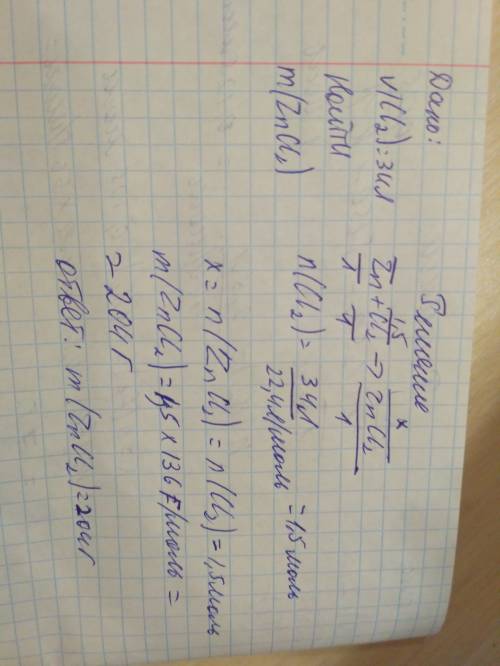 Дано:
V(Cl₂)=34л
Найти
m(ZnCl₂)
Решение
1,5 x
Zn + Cl₂ → ZnCl₂
1 1 1
n(Cl₂) = 34л / 22,4л/моль = 1,5 моль
x = n(ZnCl₂) = n(Cl₂) = 1,5моль
m(ZnCl₂) = 1,5 x 136 г/моль =
= 204г
ответ: m(ZnCl₂)=204г